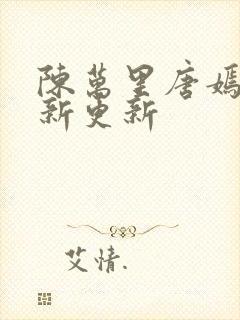 陳萬里唐嫣
新更新
艾情.